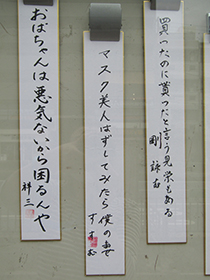 買ったのに貰ったと言う見栄もある
剛
マスク美人はずしてみたら僕の妻
おばちゃんは悪気ないから困るんや
祥三